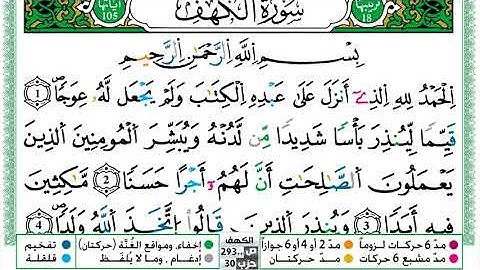 ترتيبها 18
سُورَةُ الكَهْفِ
آياتها 105
بِسْمِ اللَّهِ الرَّحْمَٰنِ الرَّحِيمِ
اِلْحَمْدُ لِلهِ الذِےٓ أَنزَلَ عَلَىٰ عَبْدِهِ اِلْكِتَٰبَ وَلَمْ يَجْعَل لَّهُۥ عِوَجاًۖ 1
قَيِّماً لِّيُنذِرَ بَأْساً شَدِيداً مِّن لَّدُنْهُ وَيُبَشِّرَ اَلْمُومِنِينَ اَلذِينَ
يَعْمَلُونَ اَلصَّٰلِحَٰتِ أَنَّ لَهُمُۥٓ أَجْراً حَسَناً 2 مَّٰكِثِينَ
فِيهِ أَبَداً 3 وَيُنذِرَ اَلذِينَ قَالُواْ اُ۪تَّخَذَ اَللَّهُ وَلَداًۖ 4
مدّ 6 حركات لزوماً مدّ 2 أو 4 أو 6 جوازاً الكهف ص 293 إخفاء، ومواقع الغُنَّة (حركتان) تفخيم
مدّ مشبع 6 حركات مدّ حركتان حزب 30 إدغام، وما لا يُلفَظ قلقلة